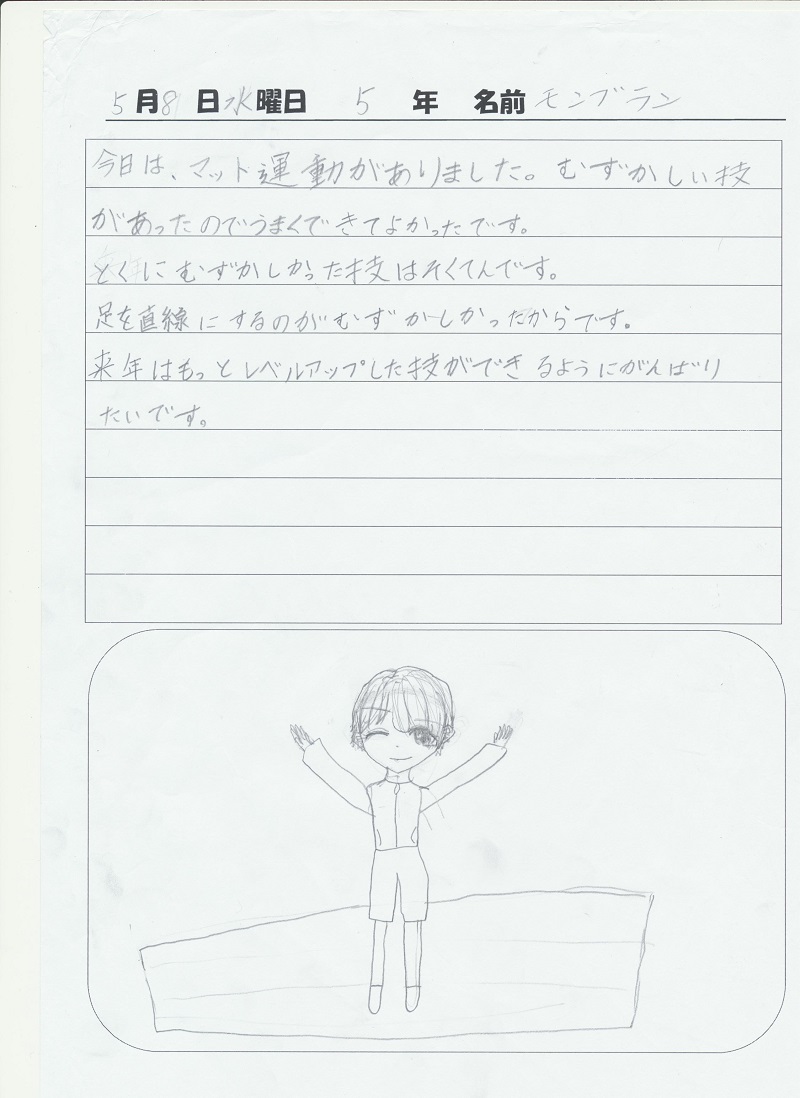 5月8日水曜日 5年 名前 モンブラン
今日は、マット運動がありました。むずかしい技
があったのでうまくできてよかったです。
とくにむずかしかった技はそくてんです。
足を直線にするのがむずかしかったからです。
来年はもっとレベルアップした技ができるようにがんばり
たいです。